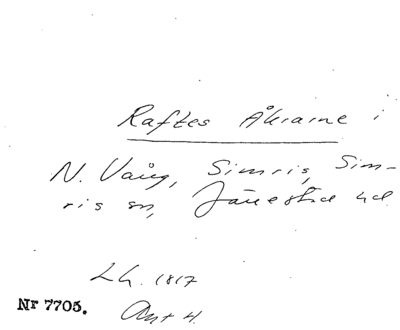 Raftes Åkrarne i
N. Vång, Simris, Sim-
ris sn, Järrestad hd
Lh. 1817
Nr 7705. Avt H.